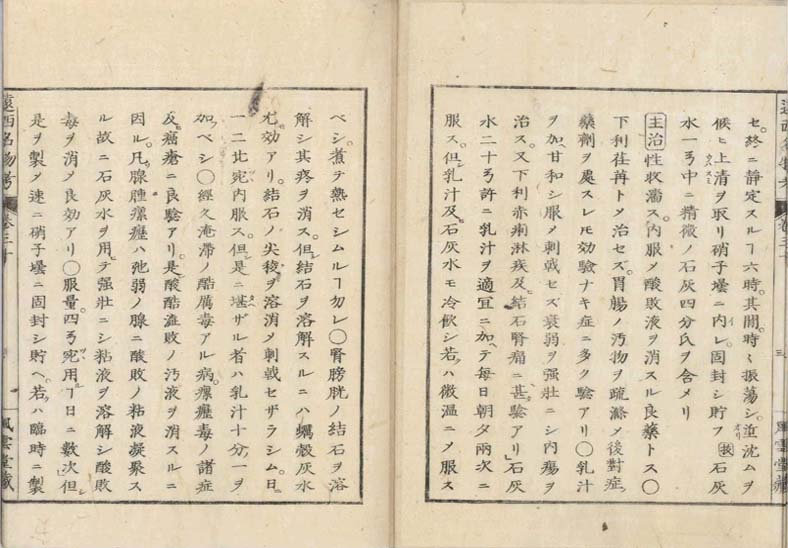 セ終ニ静定スルヿ六時其間時々振蕩シ渣沈ムヲ
候ヒ上清ヲ取リ硝子壜ニ内レ固封シ貯フ 石灰
水一弓中ニ精微ノ石灰四分氏ヲ含メリ
主治 性收濇ス内服メ酸敗液ヲ消スル良薬トス〇
下利荏苒トメ治セズ胃腸ノ汚物ヲ疏滌メ後對症
藥劑ヲ處スレモ効驗ナキ症ニ多ク驗アリ〇乳汁
ヲ加ヘ甘和シ服メ刺戟セズ衰弱ヲ强壯ニシ内瘍ヲ
治ス又下利赤痢淋疾及ビ結石腎痛ニ甚ダ驗アリ石灰
水二十弓許ニ乳汁ヲ適宜ニ加ヘテ每日朝夕兩次ニ
服ス但シ乳汁及ビ石灰水モ冷飲シ若クハ微温ニメ服ス
風雲堂藏
ベシ煮テ熱セシムルヿ勿レ〇腎膀胱ノ結石ヲ溶
解シ其疼ヲ消ス但シ結石ヲ溶解スルニハ蠣殻灰水
尤効アリ結石ノ尖稜ヲ溶消メ刺戟セザラシム日ニ
一二比宛内服ス但シ是ニ堪ザル者ハ乳汁十分一ヲ
加ベシ〇經久淹滞ノ酷厲毒アル病瘰癧毒ノ諸症
及ビ癌瘡ニ良驗アリ是レ酸酷盗敗ノ汚液ヲ消スルニ
因ル凡ソ腺腫瘰癧ハ弛弱ノ腺ニ酸敗ノ粘液凝聚ス
ル故ニ石灰水ヲ用テ强壯ニシ粘液ヲ溶解シ酸敗
毒ヲ消メ良効アリ〇服量四弓宛用ヿ日ニ數次但シ
是ヲ製メ速ニ硝子壜ニ固封シ貯ヘ若クハ臨時ニ製
遠西名物考 卷三十
風雲堂藏